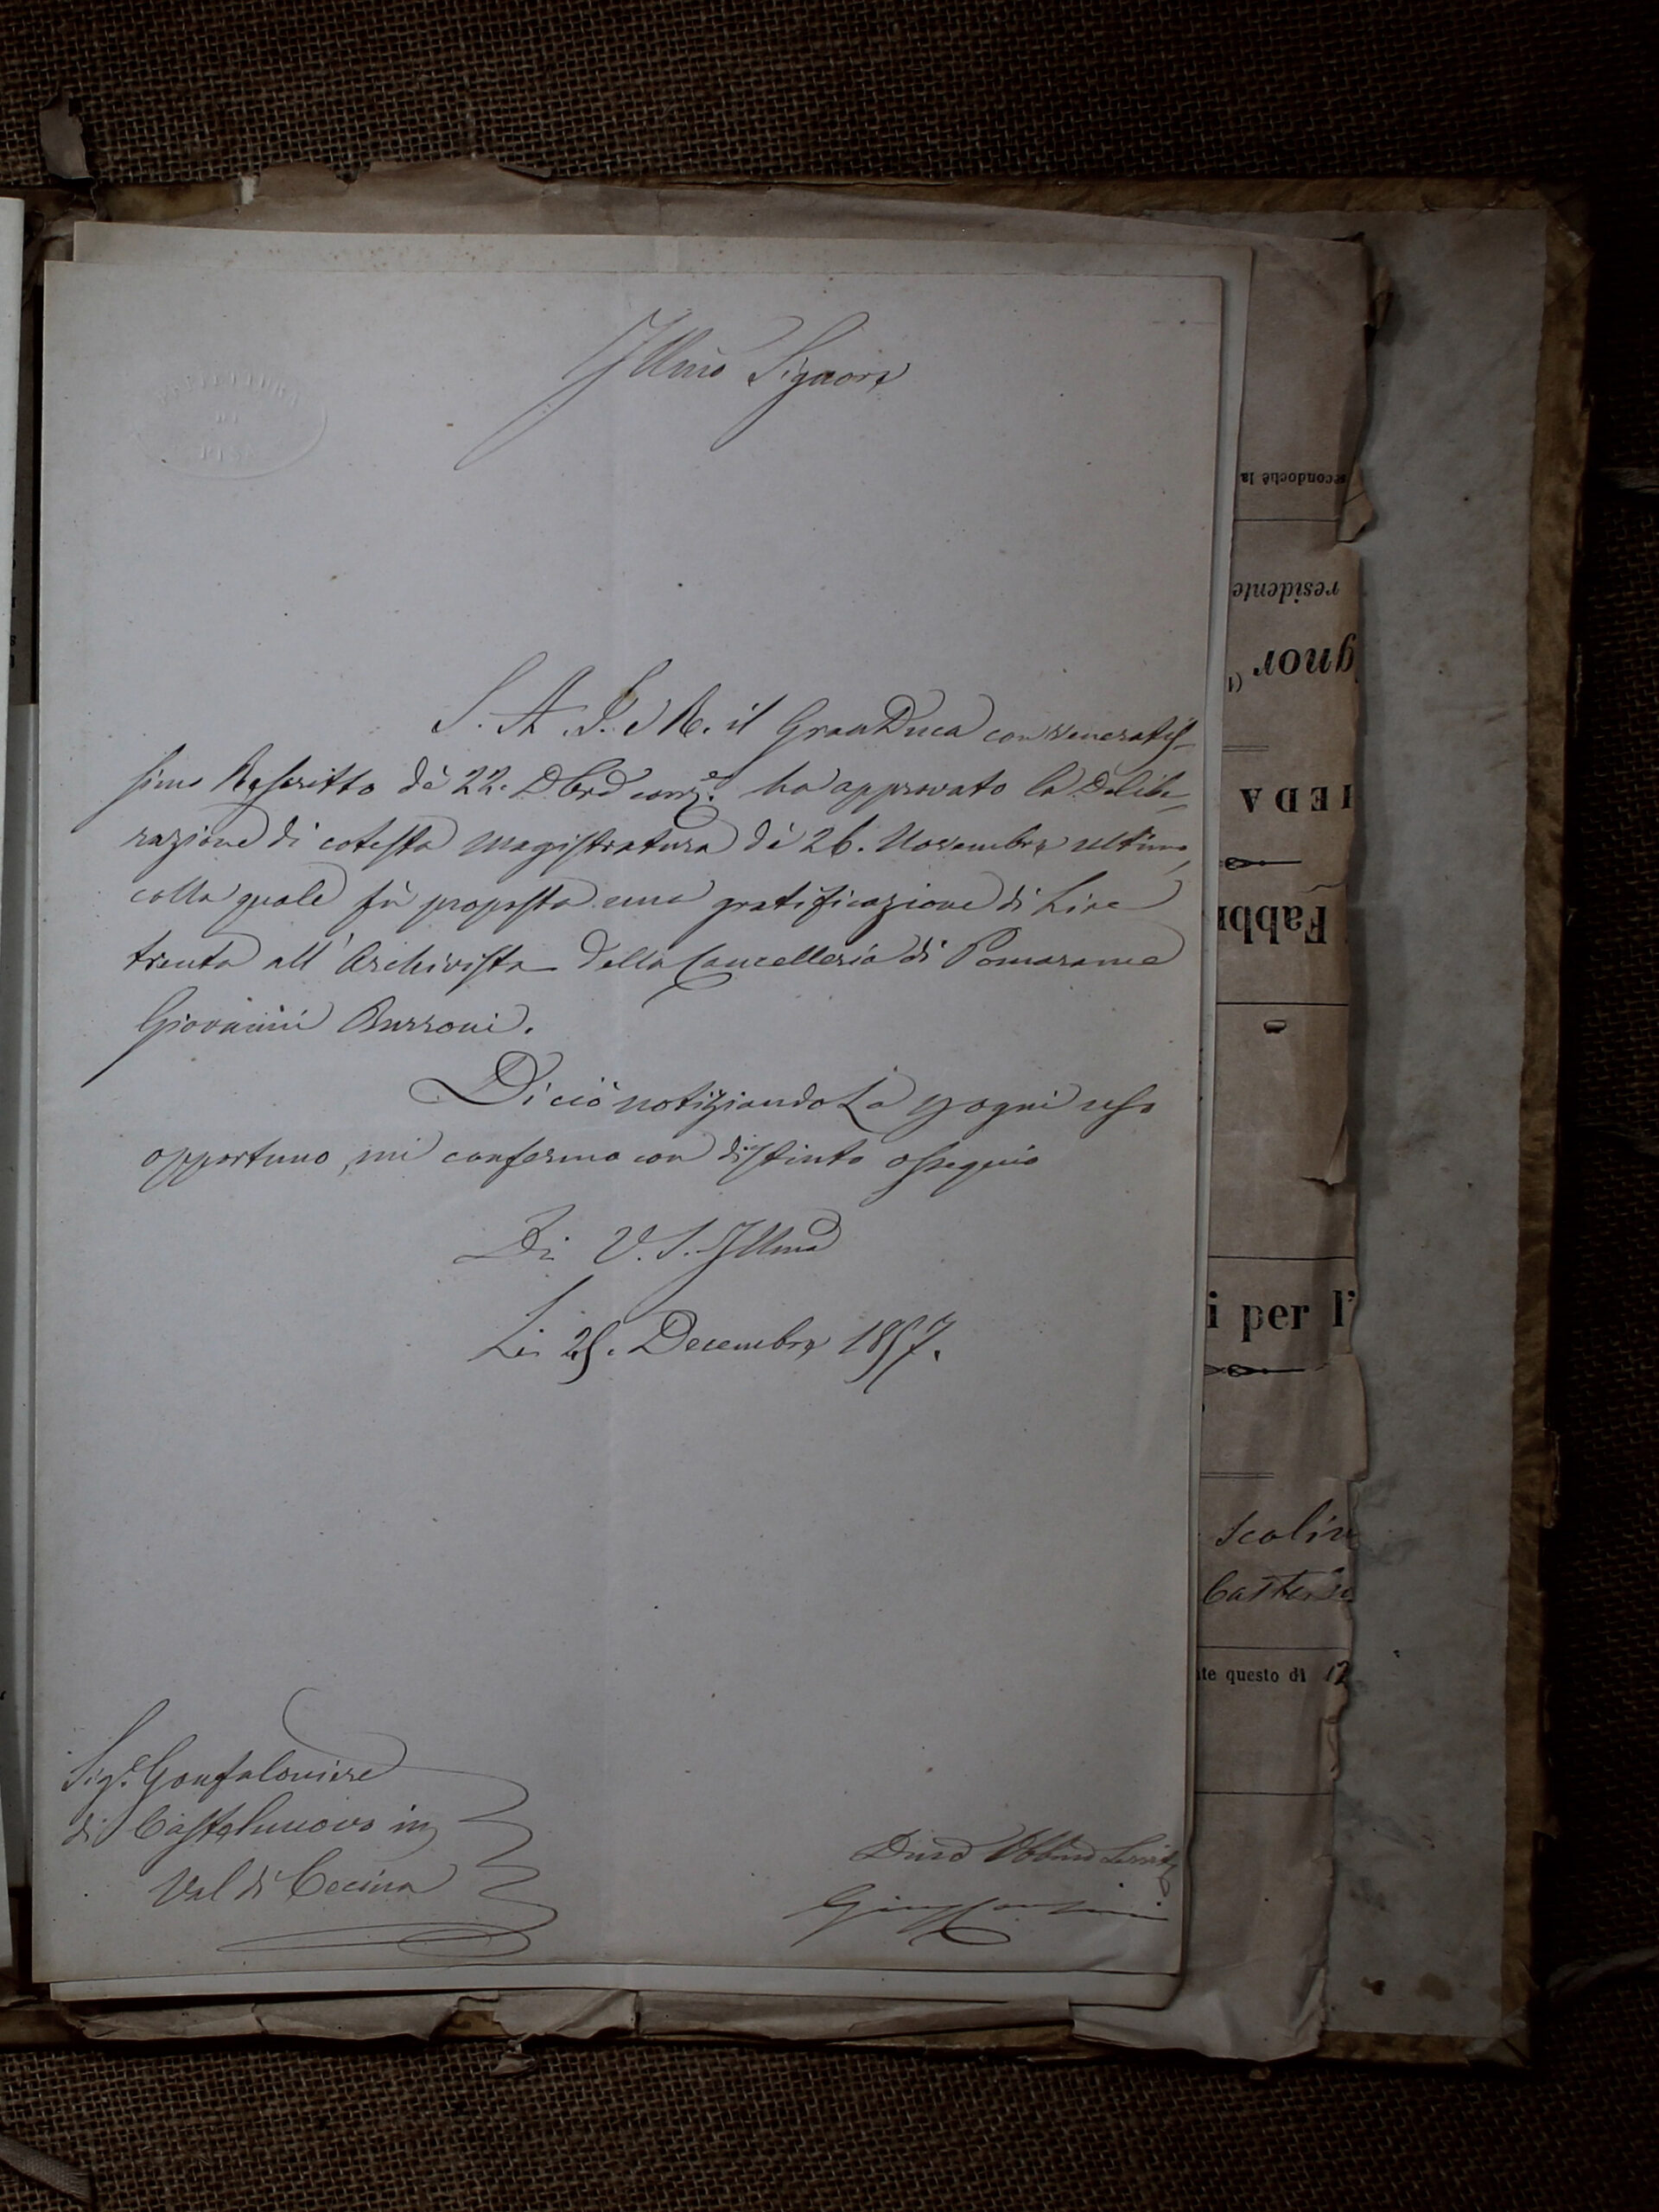 PREFETTURA
DI
PISA
Illmo Signore
S. A. I. e R. il GranDuca con veneratis=
simo Rescritto de 22. Dbre corr.e ha approvato la Delibe=
razione di cotesta Magistratura de 26. Novembre ultimo,
colla quale fù proposta una gratificazione di Lire
trenta all'Archivista della Cancelleria di Pomarance
Giovanni Burroni.
Di ciò notiziandoLa p ogni uso
opportuno, mi confermo con distinto ossequio
Di V. S. Illma
Li 25. Decembre 1857.
Sig.e Gonfaloniere
di Castelnuovo in
Val di Cecina
Dmo Obbmo Servit
econdochè la
residente
gnor (1)
IEDA
Fabbr
i per l'
scolin
te questo dì 12